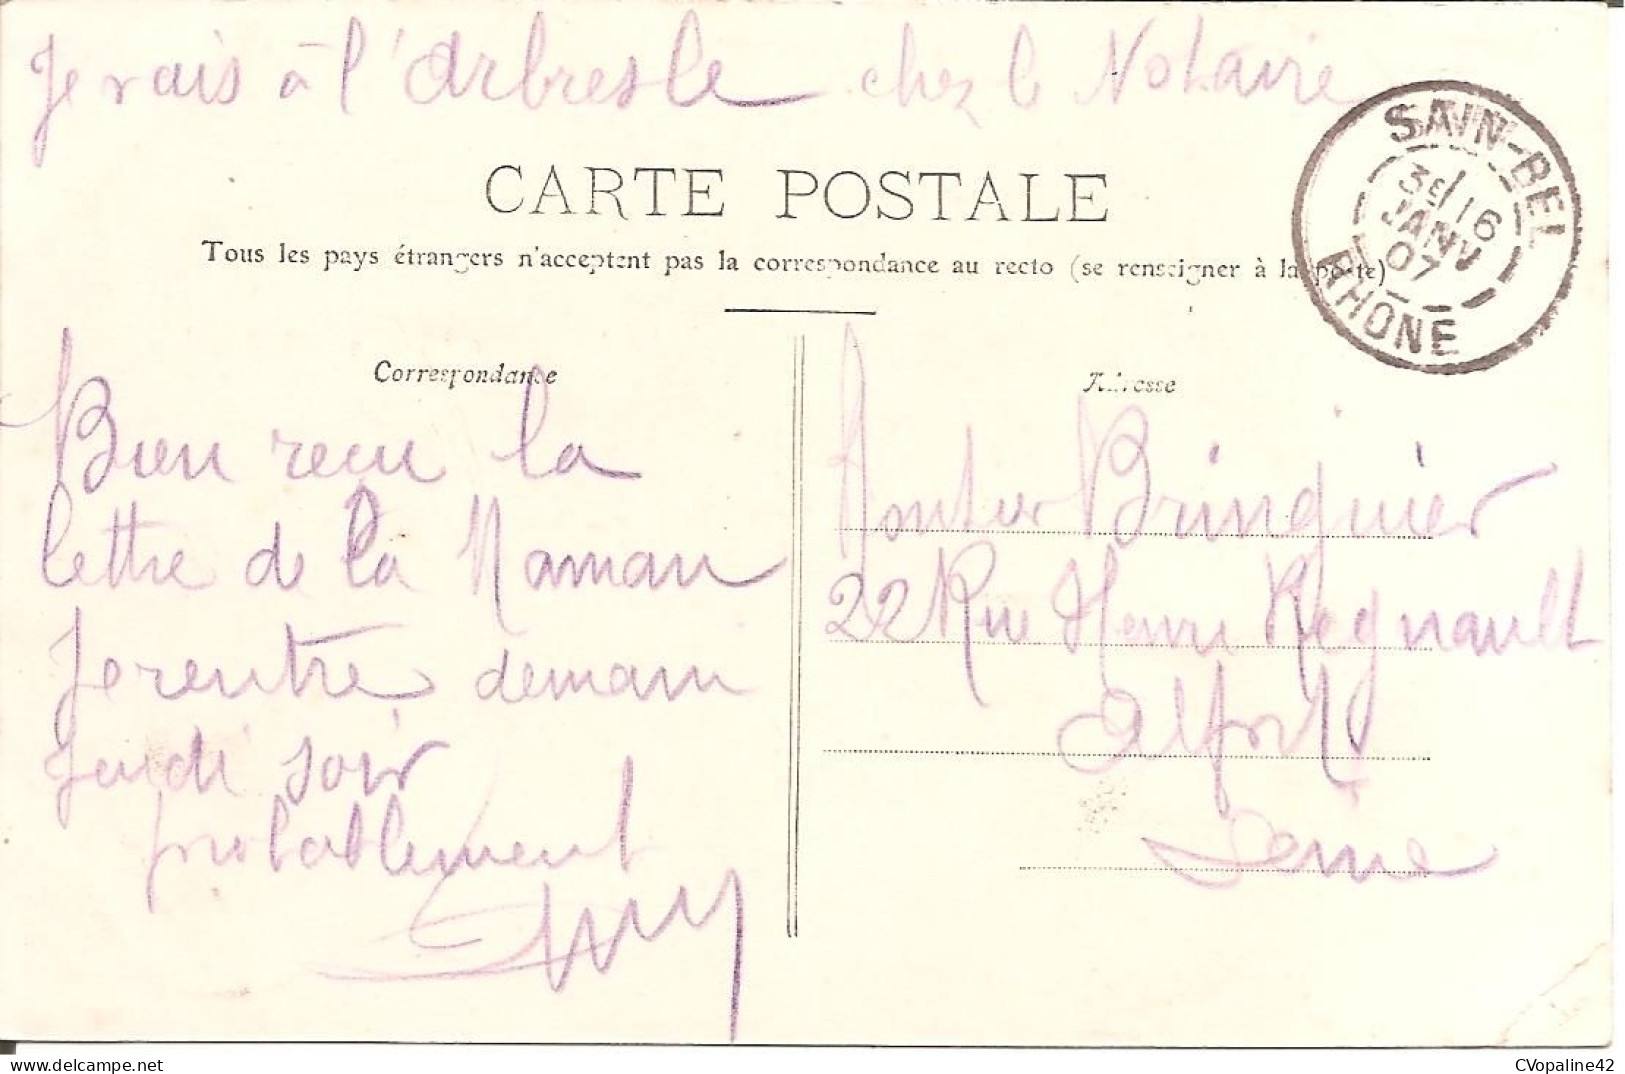 Je vais à l'Arbresle chez le Notaire
CARTE POSTALE
Tous les pays étrangers n'acceptent pas la correspondance au recto (se renseigner à la poste)
SAIN-BEL
3E/16
JANV
07
RHONE
Correspondance
Bien reçu la
lettre de la Maman
Je rentre demain
jeudi soir
probablement
Adresse
Bringuier
22 Rue Henri Regnault
Alfort
Seine
CVopaline42